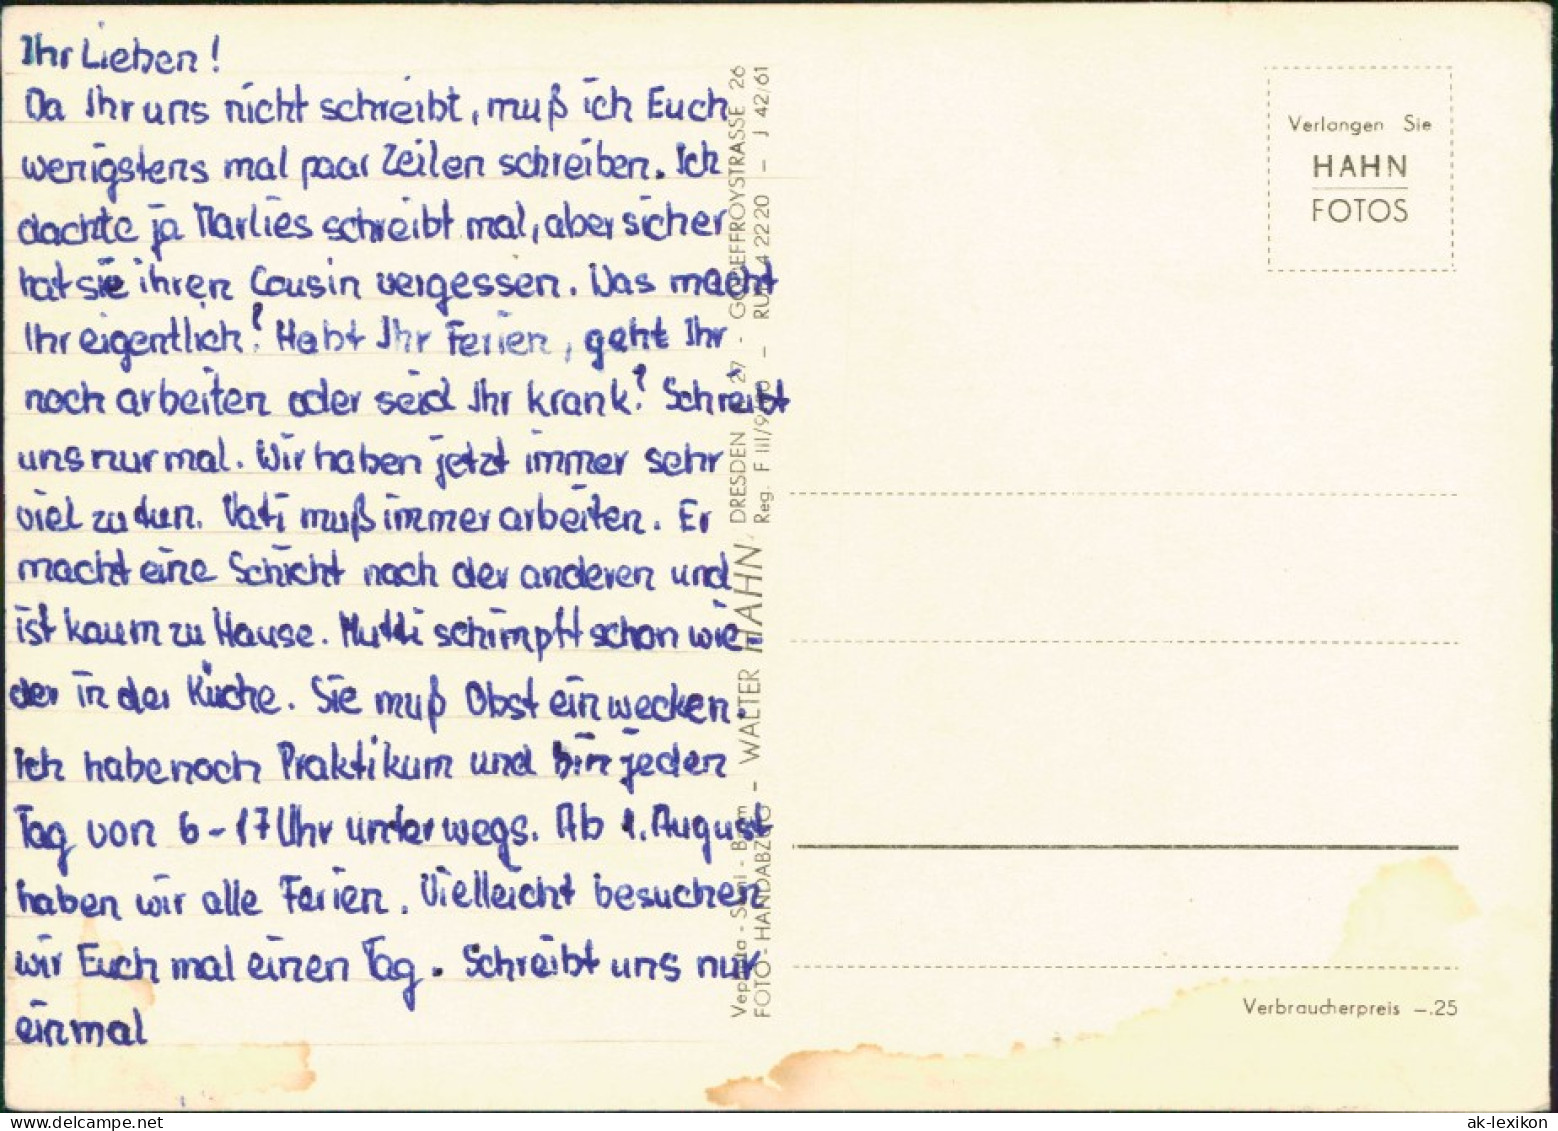 Ihr Lieben!
Da Ihr uns nicht schreibt, muß ich Euch
wenigstens mal paar Zeilen schreiben. Ich
dachte ja Marlies schreibt mal, aber sicher
hat sie ihren Cousin vergessen. Was macht
Ihr eigentlich? Habt Ihr Ferien, geht Ihr
noch arbeiten oder seid Ihr krank? Schreibt
uns nur mal. Wir haben jetzt immer sehr
viel zu tun. Vati muß immer arbeiten. Er
macht eine Schicht nach der anderen und
ist kaum zu Hause. Mutti schimpft schon wie-
der in der Küche. Sie muß Obst einwecken.
Ich habe noch Praktikum und bin jeden
Tag von 6-17 Uhr unterwegs. Ab 1. August
haben wir alle Ferien. Vielleicht besuchen
wir Euch mal einen Tag. Schreibt uns nur
einmal
FOTO-HANDABZUG - WALTER HAHN, DRESDEN 27 - 26
Reg. F III/ - J 42/61
Verlangen Sie
HAHN
FOTOS
Verbraucherpreis -.25
ak-lexikon